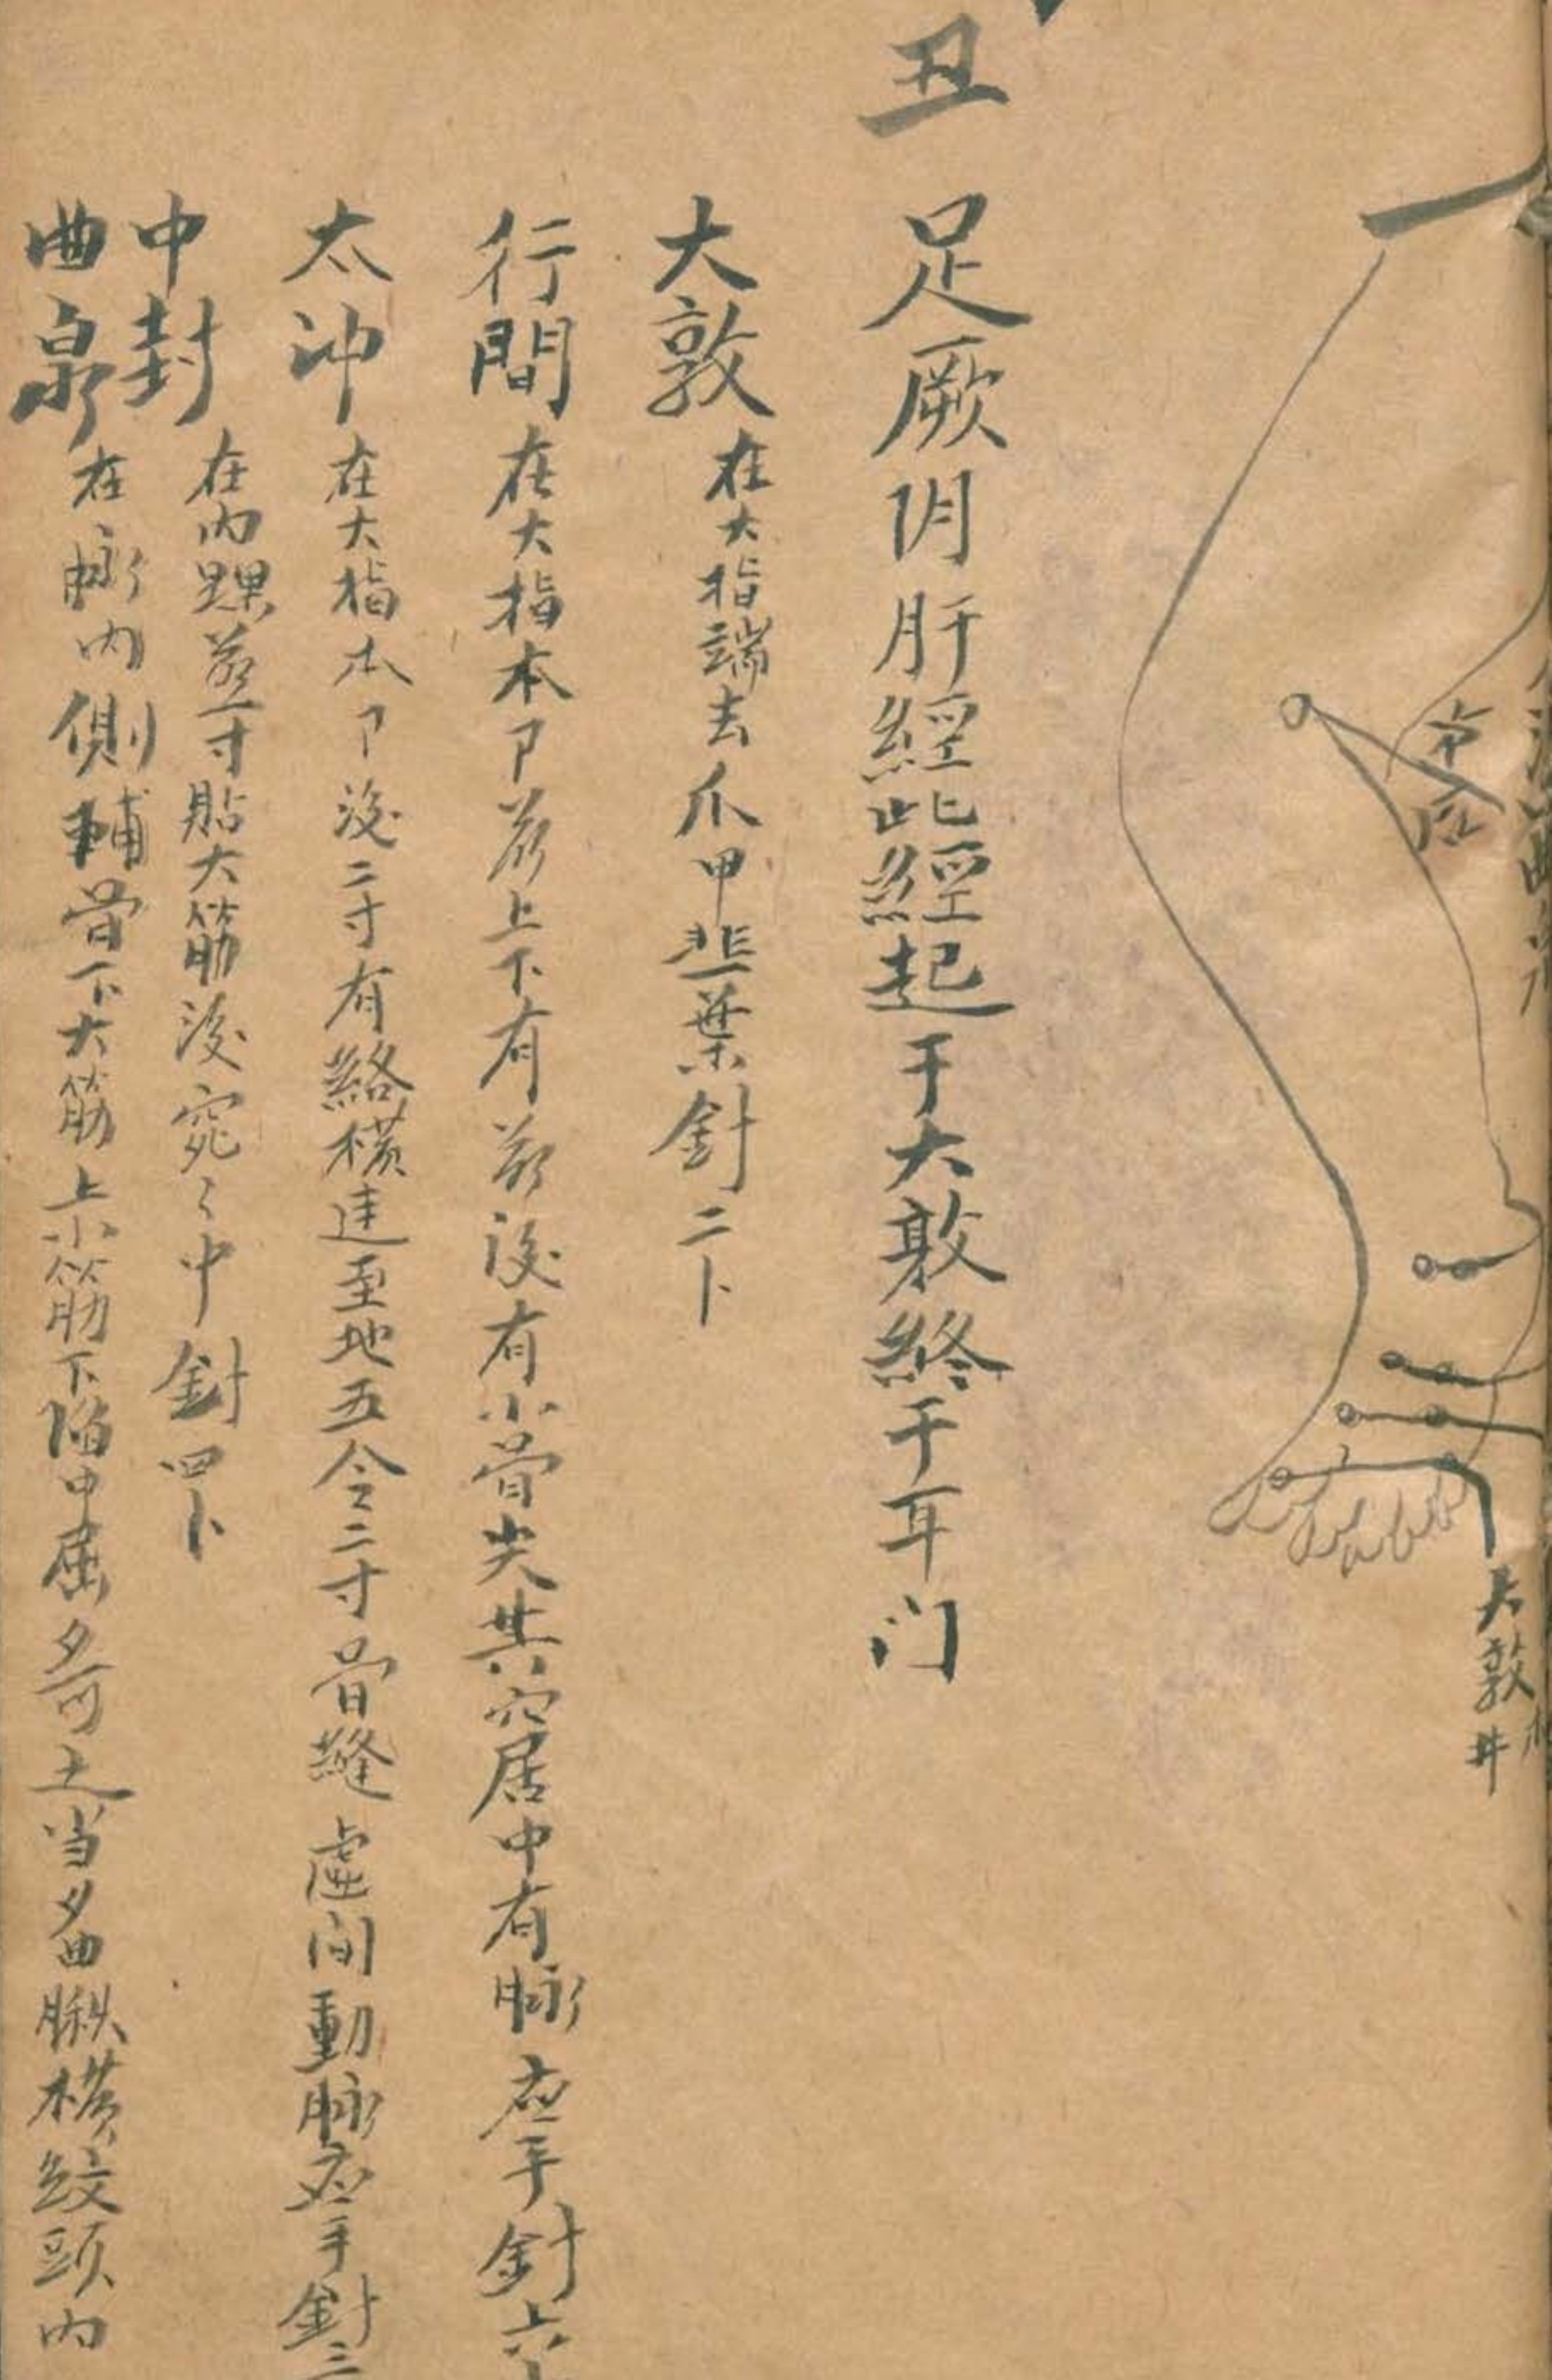 丑
足厥阴肝經此經起于大敦終于耳门
大敦 在大指端去爪甲韮葉針二卜
行間 在大指本卩前上下有前後有小骨尖其穴居中有脉应手針六
太冲 在大指本卩後二寸有絡横連至地五令二寸骨縫虚间動脉应手針三
中封 在内踝前一寸貼大筋後宛〻中針四卜
曲泉 在内側輔骨下大筋上小筋下陷中屈取之当曲䐐横紋頭内
大敦井